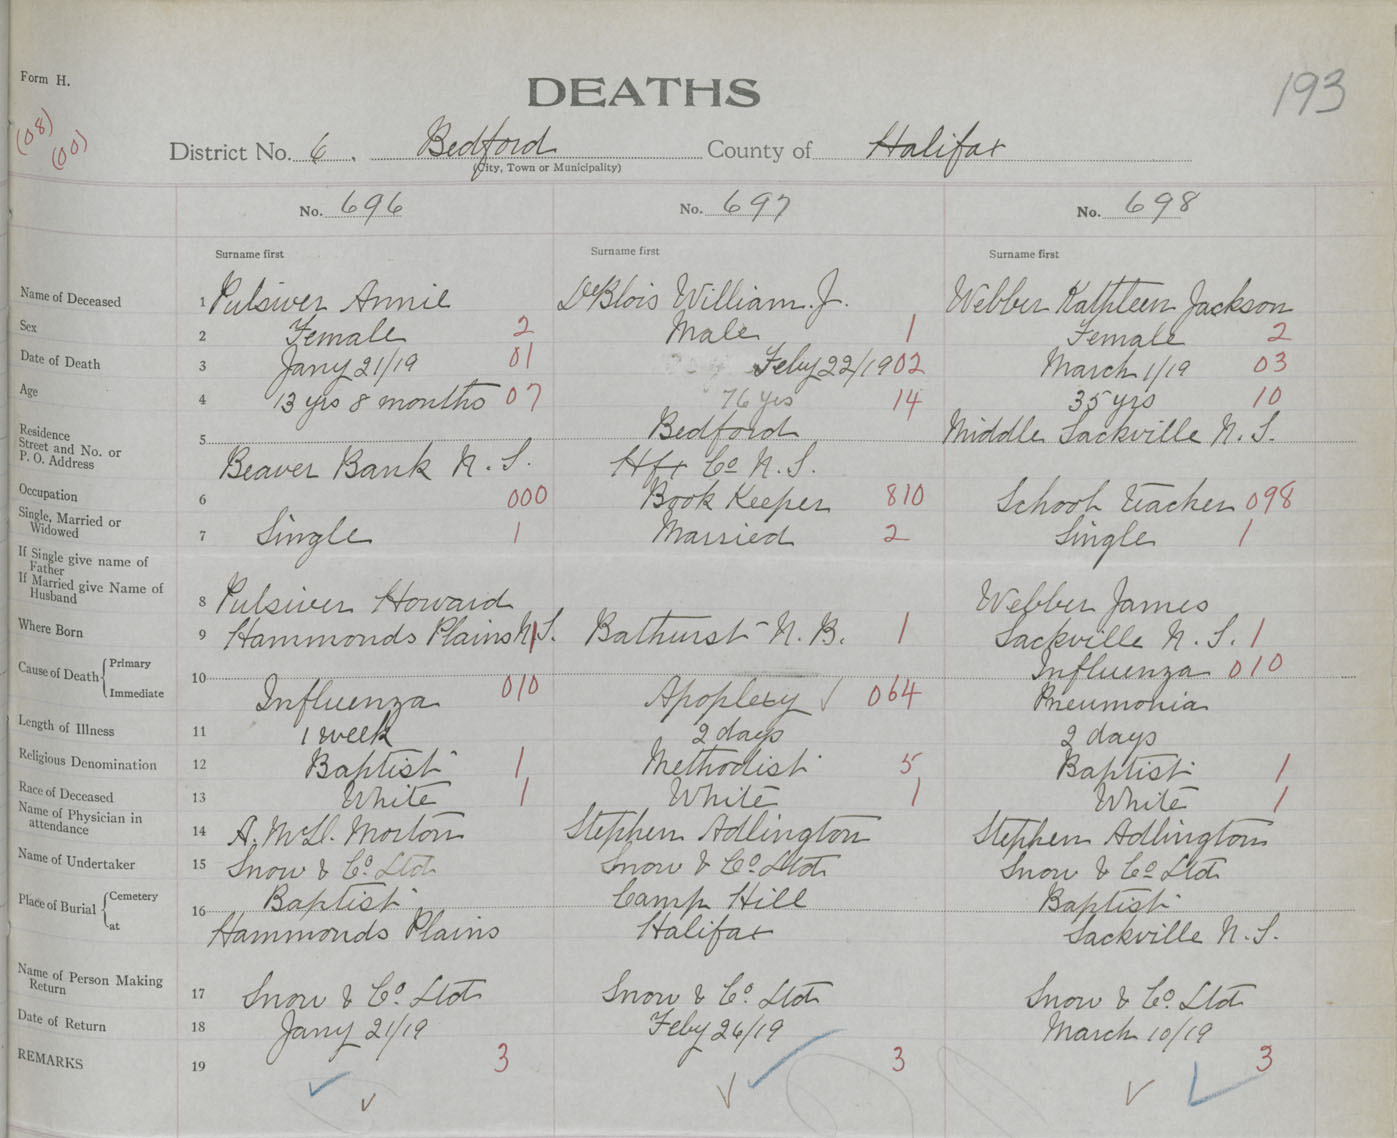 Form H.
DEATHS
193
(08)
(00)
District No. 6. Bedford County of Halifax
(City, Town or Municipality)
No. 696 No. 697 No. 698
Surname first Surname first Surname first
Name of Deceased 1 Pulsiver Annie DeBlois William J. Webber Kathleen Jackson
Sex 2 Female 2 Male 1 Female 2
Date of Death 3 Jany 21/19 01 Feby 22/19 02 March 1/19 03
Age 4 13 yrs 8 months 07 76 yrs 14 35 yrs 10
Residence 5 Bedford Middle Sackville N.S.
Street and No. or
P. O. Address Beaver Bank N.S. Hfx Co N.S.
Occupation 6 000 Book Keeper 810 School teacher 098
Single, Married or
Widowed 7 Single 1 Married 2 Single 1
If Single give name of
Father
If Married give Name of
Husband 8 Pulsiver Howard Webber James
Where Born 9 Hammonds Plains N.S. 1 Bathurst N.B. 1 Sackville N.S. 1
Cause of Death Primary 10 Influenza 010
Immediate Influenza 010 Apoplexy 064 Pneumonia
Length of Illness 11 1 week 2 days 2 days
Religious Denomination 12 Baptist 1 Methodist 5 Baptist 1
Race of Deceased 13 White 1 White 1 White 1
Name of Physician in
attendance 14 A. McD. Morton Stephen Adlington Stephen Adlington
Name of Undertaker 15 Snow & Co. Ltd Snow & Co. Ltd Snow & Co Ltd
Place of Burial Cemetery 16 Baptist Camp Hill Baptist
at Hammonds Plains Halifax Sackville N.S.
Name of Person Making
Return 17 Snow & Co. Ltd Snow & Co. Ltd Snow & Co. Ltd
Date of Return 18 Jany 21/19 Feby 26/19 March 10/19
REMARKS 19 3 3 3